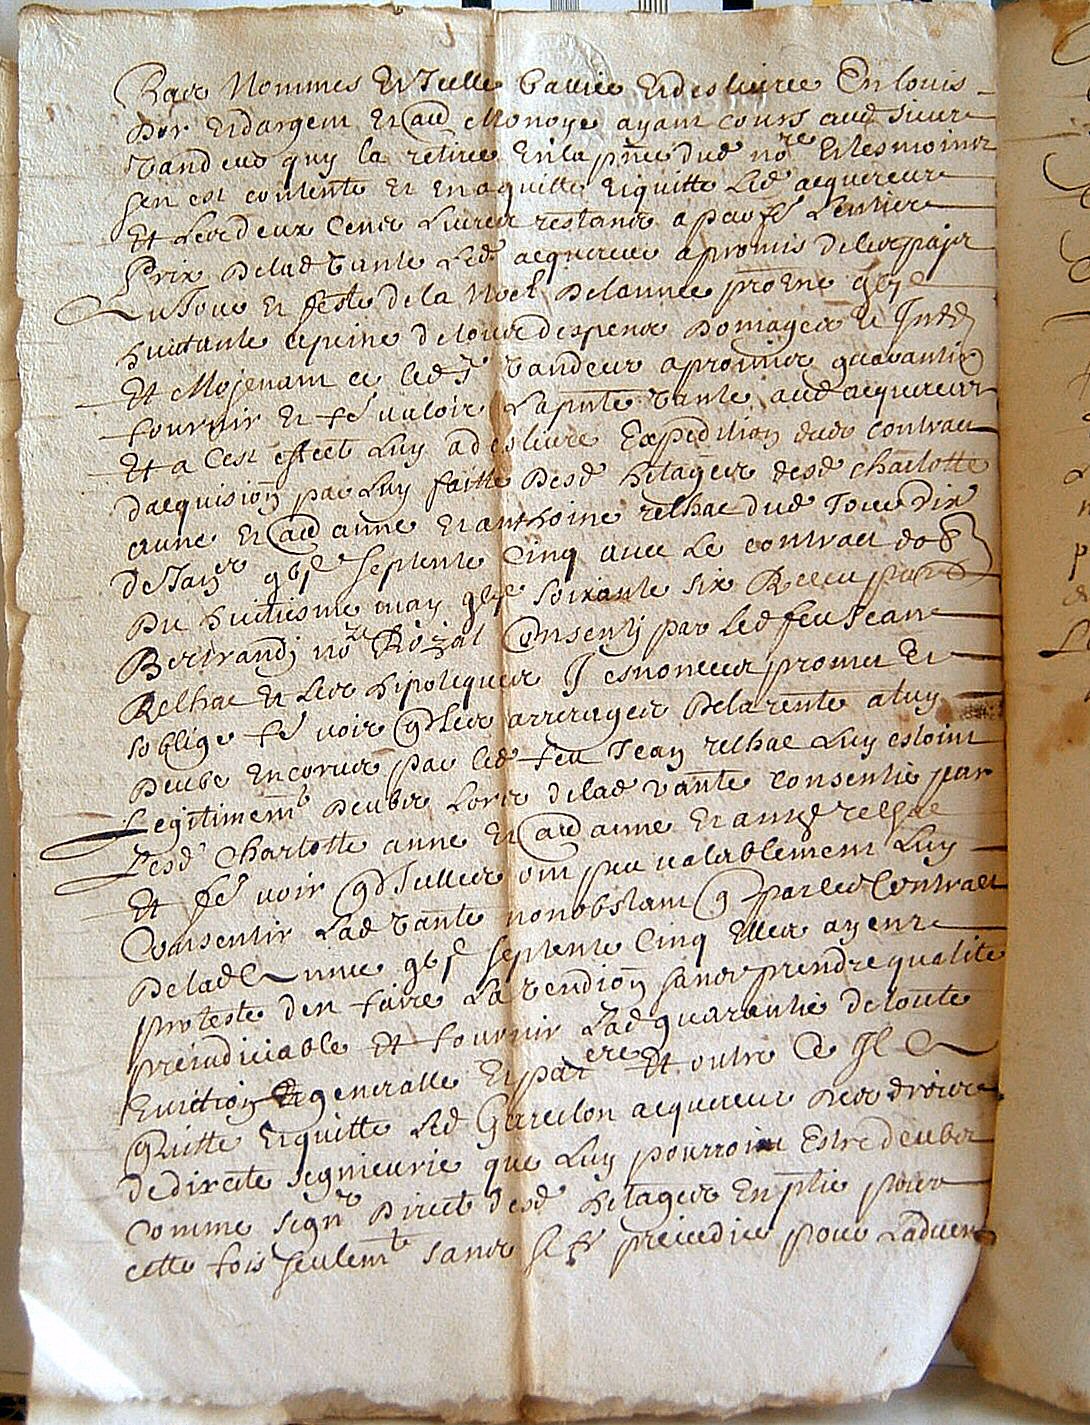 par Nommes Et Icelle baillée Et deslivrée En louis
Dor Et dargent Et aut Monoye ayant cours aud Sieur
vandeur quy la retiree En la pnce dud nore Et tesmoins
sen est contente Et En a quitte Et quitte Led acquereur
Et Les deux Cens Livres restans a
Prix De lad vante Led acquereur a promis de les payer
Au Jour Et feste de la Noel De lannee proch
huictante a peine de tous despens Domages Et
Et Mojenant ce led Sr vandeur a promis guarantir
fournir Et fe valoir La pnte vante aud acquereur
Et a Cest effect Luy a deslivré Expedition du contract
dacquision par Luy faitte Desd hitages desd Charlotte
aune Et aut anne Et anthoine relhac dud Jour dix
De Janer septente Cinq avec Le contract
Du huitiesme may soixante six Receu par
Bertrandj nore Rozal Consenty par Led feu Jean
Relhac Et Les hipoteques Y esnoncees promet Et
soblige fe voir q Les arrerages De la rente a luy
Deube Encorue par led feu Jean relhac Luy estoint
Legitimemt Deubes Lors de lad vante consentie par
Lesd Charlotte anne Et aut anne Et anthe relhac
Et fe voir q Icelles ont peu valablement Luy
Consentir Lad vante nonobstant q par led Contract
De lad Annee septente Cinq Elles ayent
proteste den faire La vendion sans prendre qualite
preiudiciable Et fournir Lad guarantie de toute
Euiction generalle Et parere Et outre Ce Il A
Quitte Et quitte Led acquereur Des droicts
de directe segnieurie que Luy pourroint Estre deubes
Comme segnr Direct desd hitages En plie pour
cette fois seulemt sans preiudice pour Laduenir